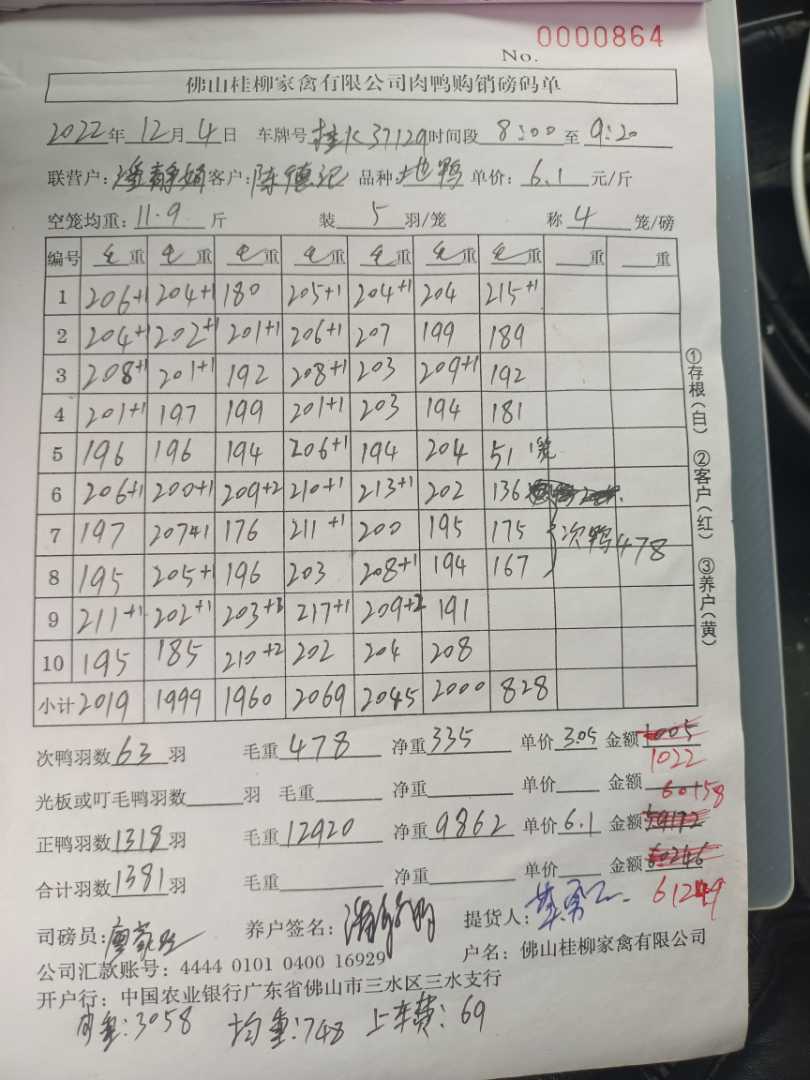 No. 0000864
佛山桂柳家禽有限公司肉鸭购销磅码单
2022年 12月 4日 车牌号 桂K37129 时间段 8:00 至 9:20
联营户: 潘静娟 客户: 陈德记 品种 土鸭 单价: 6.1 元/斤
空笼均重: 11.9 斤 装 5 羽/笼 称 4 笼/磅
编号 毛重 毛重 毛重 毛重 毛重 毛重 毛重 重 重
1 206+1 204+1 180 205+1 204+1 204 215+1
2 204+1 202+1 201+1 206+1 207 199 189
3 208+1 201+1 192 208+1 203 209+1 192
4 201+1 197 199 201+1 203 194 181
5 196 196 194 206+1 194 204 51 1笼
6 206+1 200+1 209+2 210+1 213+1 202 136
7 197 207+1 176 211+1 200 195 175 次鸭478
8 195 205+1 196 203 208+1 194 167
9 211+1 202+1 203+3 217+1 209+2 191
10 195 185 210+2 202 204 208
小计 2019 1999 1960 2069 2045 2000 828
①存根(白) ②客户(红) ③养户(黄)
次鸭羽数 63 羽 毛重 478 净重 335 单价 3.05 金额 1005
1022
光板或叮毛鸭羽数 羽 毛重 净重 单价 金额
60158
正鸭羽数 1318 羽 毛重 12920 净重 9862 单价 6.1 金额
合计羽数 1381 羽 毛重 净重 单价 金额 60246
61249
司磅员: 养户签名: 提货人:
公司汇款账号: 4444 0101 0400 16929 户名: 佛山桂柳家禽有限公司
开户行: 中国农业银行广东省佛山市三水区三水支行
3058 均重:748 上车费:69